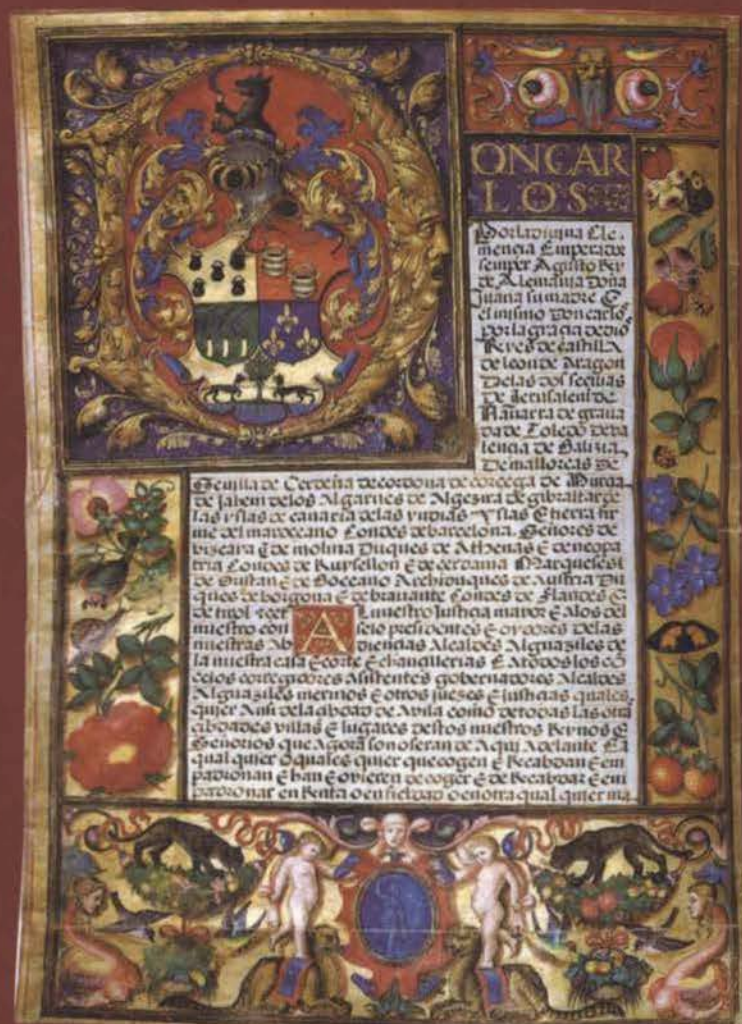 ONCAR
LOS
Por la divina Cle
mencia Emperador
semper Agusto Rey
de Alemania Doña
Juana su madre E
el mismo Don carlos
por la gracia de dios
Reyes de castilla
de leon de Aragon
Delas dos secilias
de Jerusalem de
Navarra de grana
da de Toledo de va
lencia de Galizia
De mallorcas de
Sevilla de Cerdeña de cordova de corcega de Murcia
de Jahen delos Algarves de Algezira de gibraltar de
las yslas de canaria delas yndias yslas E tierra fir
me del mar oceano Condes de barcelona. Señores de
vizcaya E de molina Duques de Athenas E de neopa
tria Condes de Ruysellon E de cerdania Marqueses
de Oristan E de Goceano Archiduques de Austria Du
ques de borgoña E de bravante Condes de Flandes E
de tirol A l nuestro Justicia mayor E alos del
nuestro con sejo presidentes E oydores delas
nuestras Ab diencias Alcaldes Alguaziles de
la nuestra casa E corte E chancillerias E A todos los co
cejos corregidores Asistentes gobernadores Alcaldes
Alguaziles merinos E otros juezes E justicias quales
quier Ansi dela cibdad de Avila como de todas las otras
cibdades villas E lugares destos nuestros Reynos E
Señorios que Agora son o seran de Aqui Adelante E a
qual quier o quales quier que cogen E Recabdan E en
padronan E han E ovieren de coger E de Recabdar E em
padronar en Renta o en fieldad o en otra qual quier ma